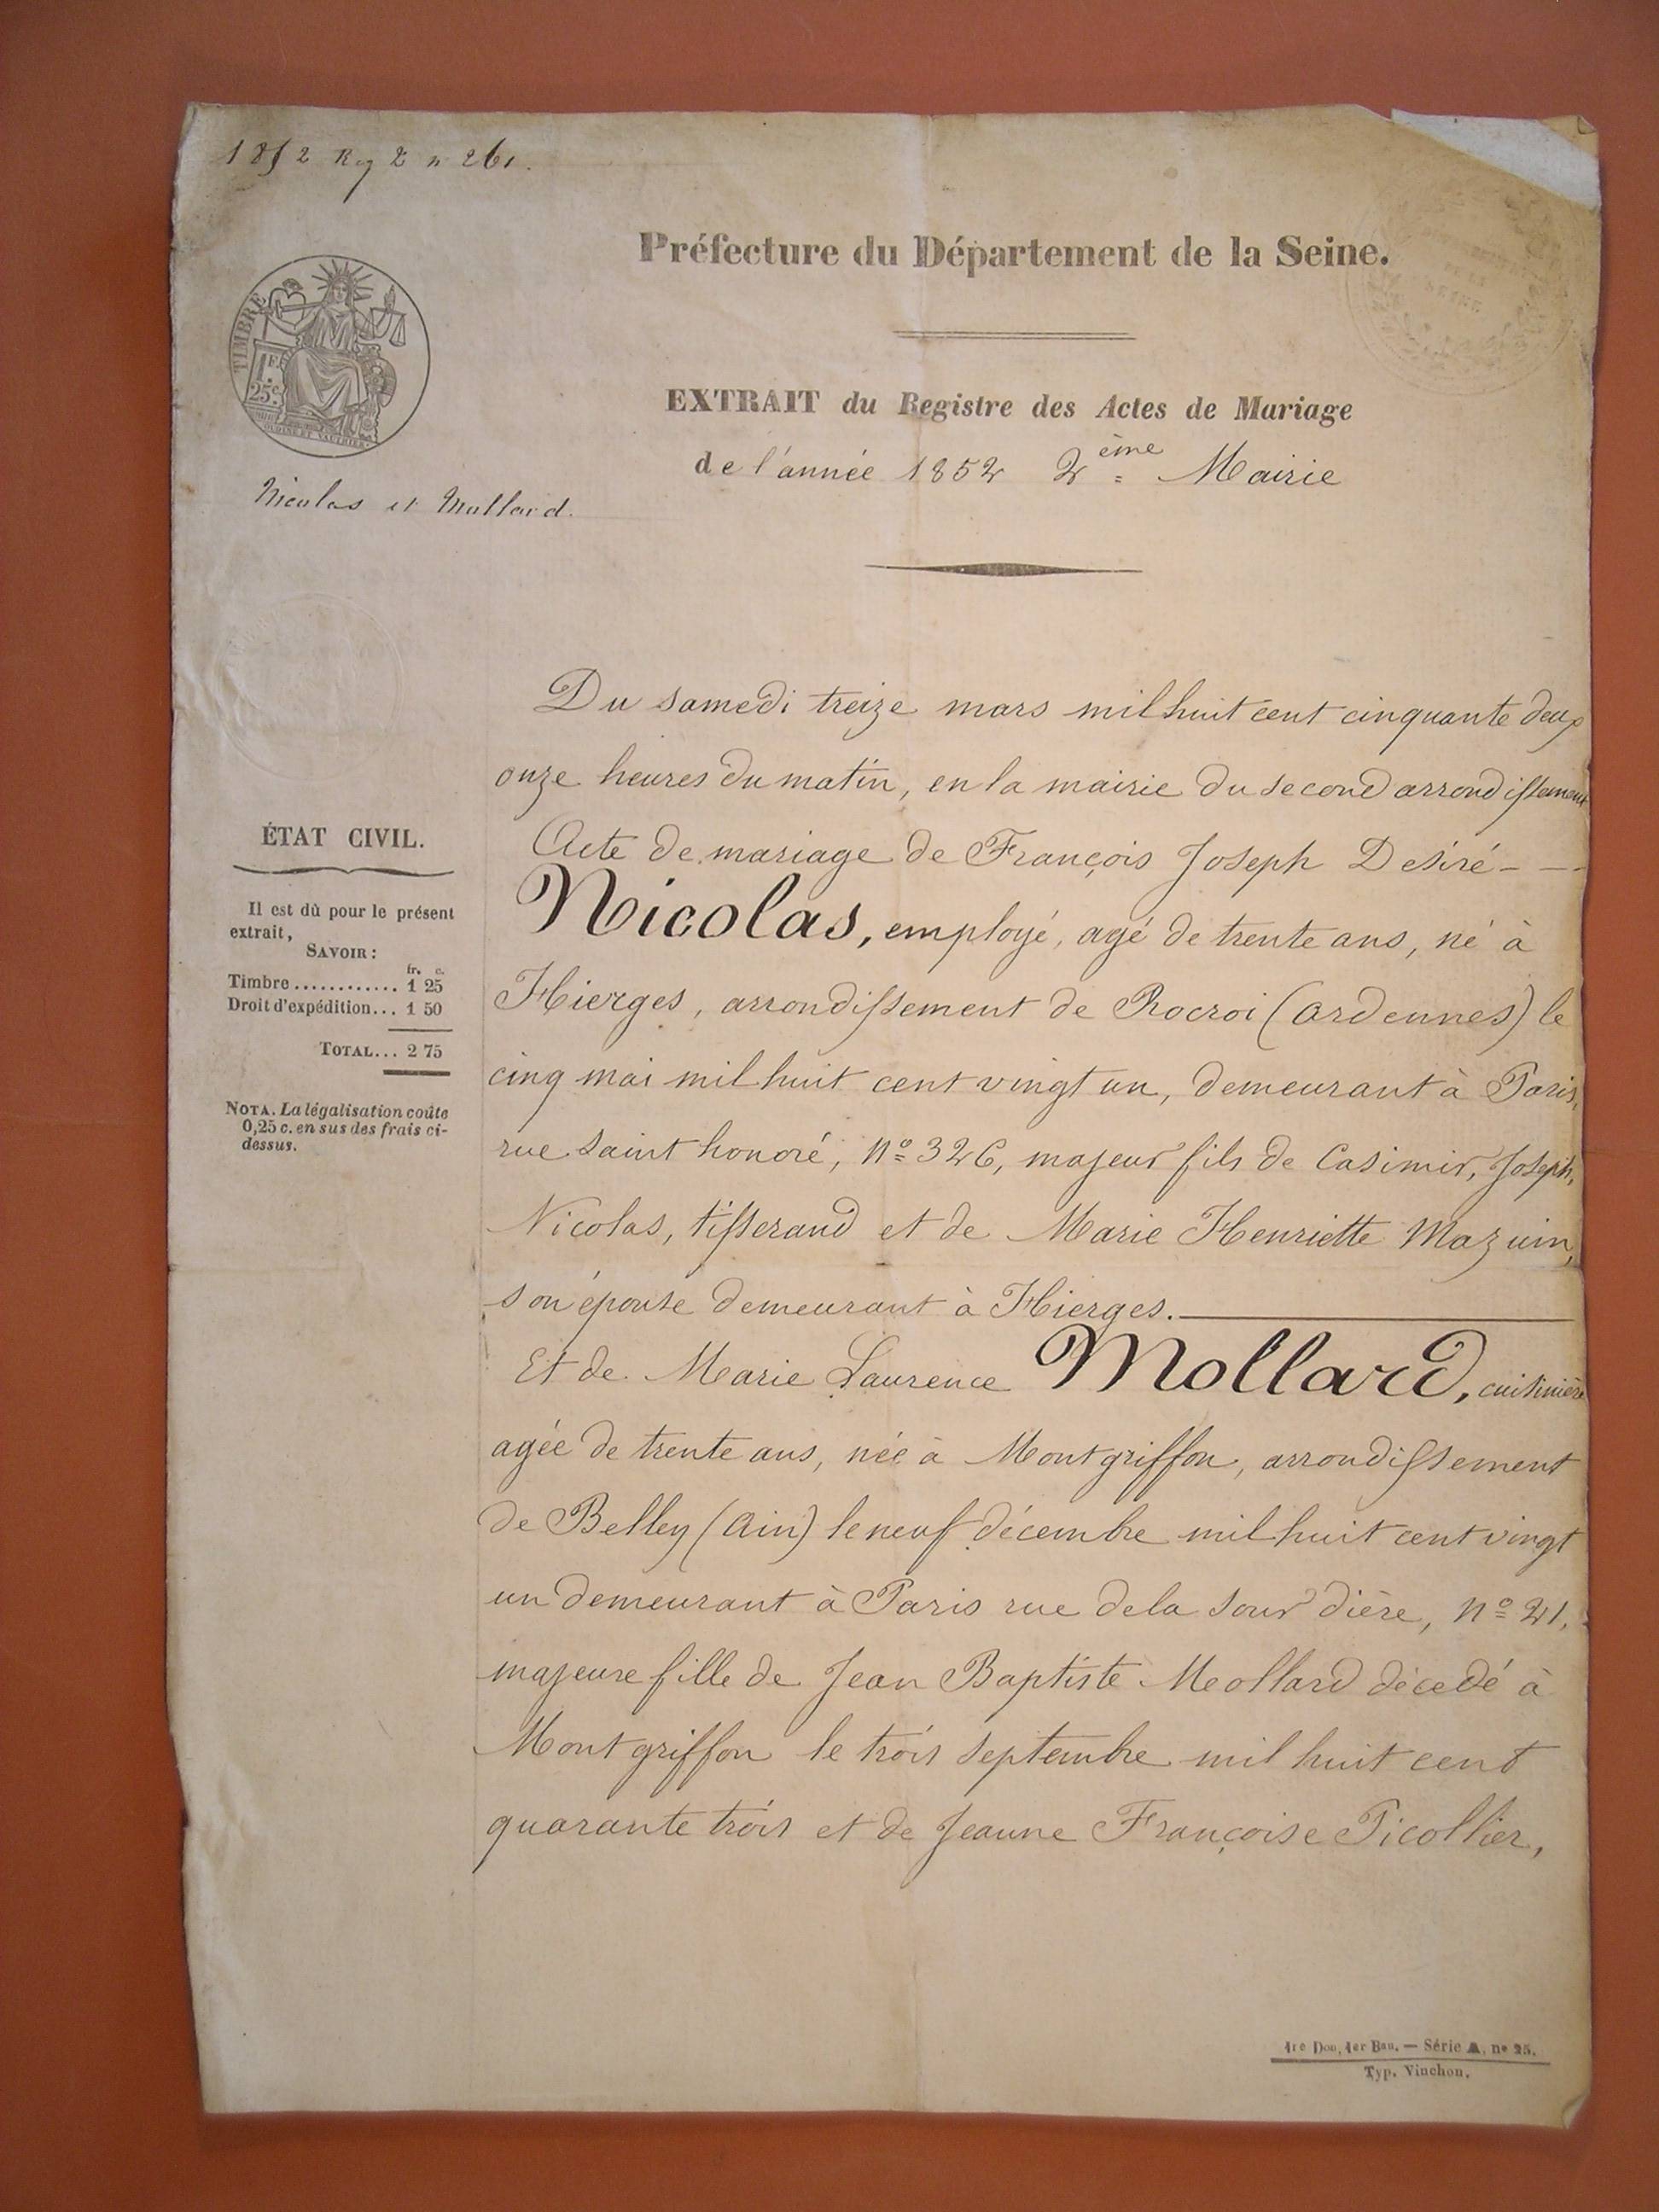 1852 Reg 2 n 261.
Préfecture du Département de la Seine.
TIMBRE
1F.
25c.
OUDINÉ ET VAUTHIER
EXTRAIT du Registre des Actes de Mariage
de l'année 1852 2ème Mairie
Nicolas et Mollard.
Du samedi treize mars mil huit cent cinquante deux
onze heures du matin, en la mairie du second arrondissement
Acte de mariage de François Joseph Desiré - - -
Nicolas, employé, agé de trente ans, né à
Hierges, arrondissement de Rocroi (Ardennes) le
cinq mai mil huit cent vingt un, demeurant à Paris,
rue saint honoré, No 326, majeur fils de Casimir, Joseph,
Nicolas, tisserand et de Marie Henriette Mazuin,
son épouse demeurant à Hierges.
Et de Marie Laurence Mollard, cuisinière
agée de trente ans, née à Montgriffon, arrondissement
de Belley (Ain) le neuf décembre mil huit cent vingt
un demeurant à Paris rue de la Sourdière, No 21,
majeure fille de Jean Baptiste Mollard décedé à
Montgriffon le trois septembre mil huit cent
quarante trois et de Jeanne Françoise Picollier,
ÉTAT CIVIL.
Il est dû pour le présent
extrait,
SAVOIR :
fr. c.
Timbre............ 1 25
Droit d'expédition... 1 50
TOTAL... 2 75
NOTA. La légalisation coûte
0,25 c. en sus des frais ci-
dessus.
1re Don, 1er Bau. — Série A, no 25.
Typ. Vinchon.